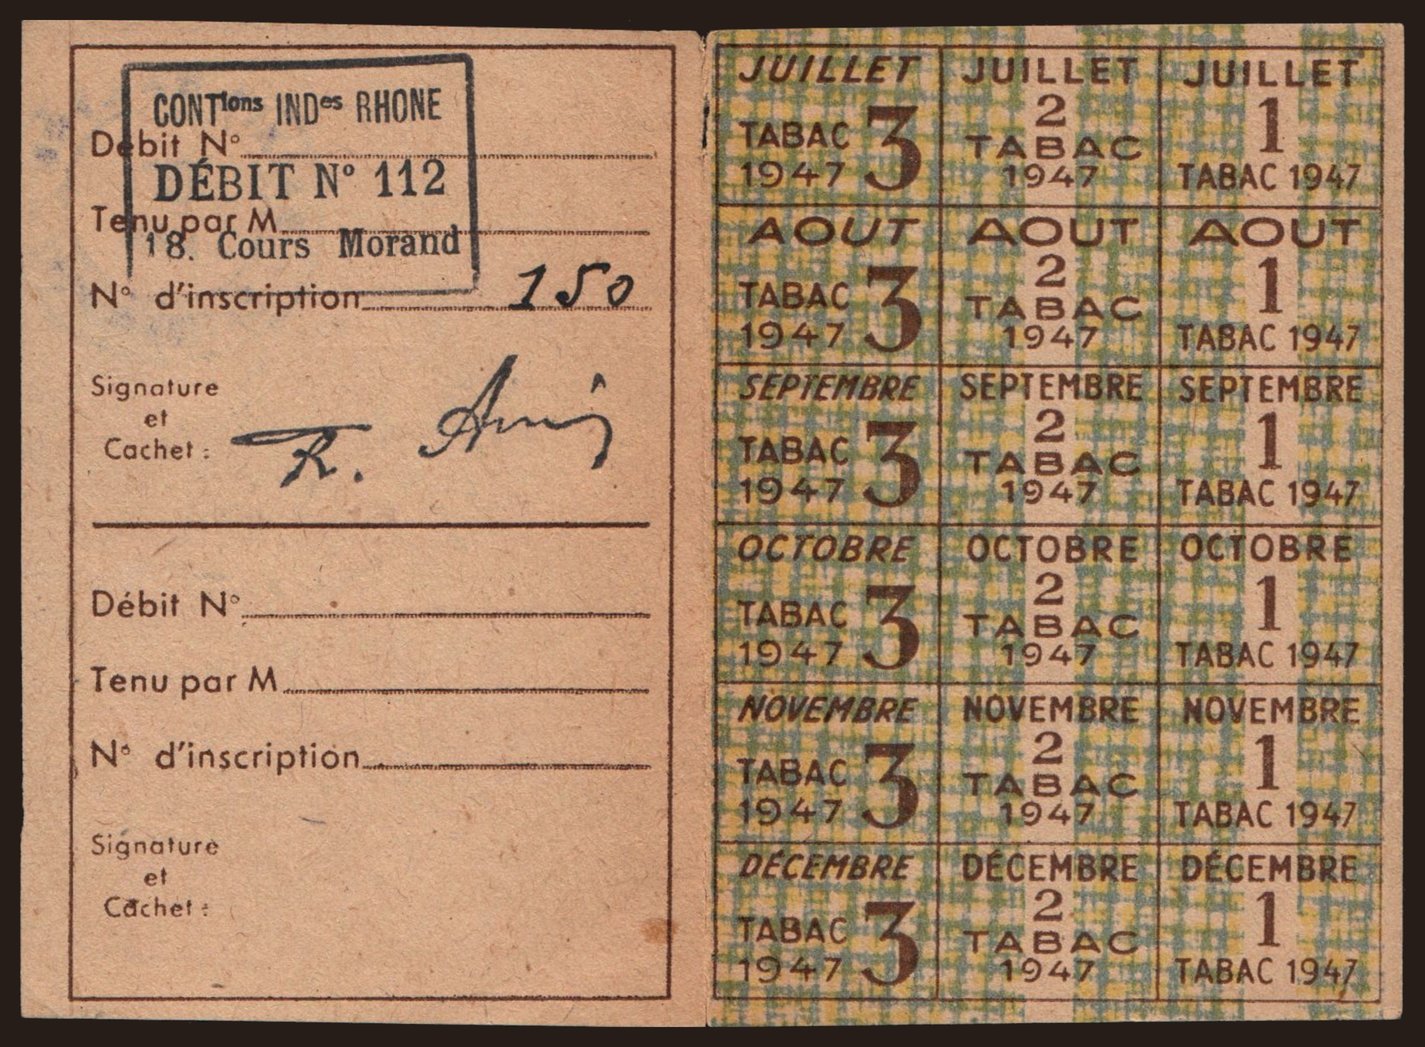 CONTions INDes RHONE
Débit N°
DÉBIT N° 112
Tenu par M
18. Cours Morand
N° d'inscription 150
Signature
et
Cachet :
Débit N°
Tenu par M
N° d'inscription
Signature
et
Cachet :
JUILLET
TABAC 3
1947
JUILLET
2
TABAC
1947
JUILLET
1
TABAC 1947
AOUT
TABAC 3
1947
AOUT
2
TABAC
1947
AOUT
1
TABAC 1947
SEPTEMBRE
TABAC 3
1947
SEPTEMBRE
2
TABAC
1947
SEPTEMBRE
1
TABAC 1947
OCTOBRE
TABAC 3
1947
OCTOBRE
2
TABAC
1947
OCTOBRE
1
TABAC 1947
NOVEMBRE
TABAC 3
1947
NOVEMBRE
2
TABAC
1947
NOVEMBRE
1
TABAC 1947
DÉCEMBRE
TABAC 3
1947
DÉCEMBRE
2
TABAC
1947
DÉCEMBRE
1
TABAC 1947